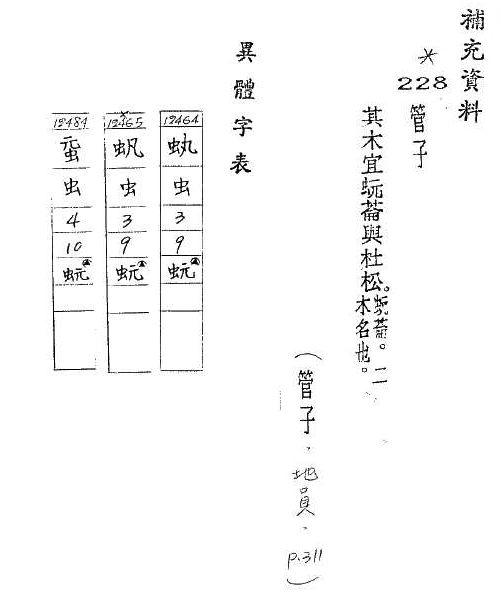 補充資料
*
228
管子
其木宜蚖菕與杜松。蚖菕。二
木名也。
(管子,地員,
p.311)
異體字表
12464
虫
3
9
蚖
12465
虫
3
9
蚖
12484
虫
4
10
蚖